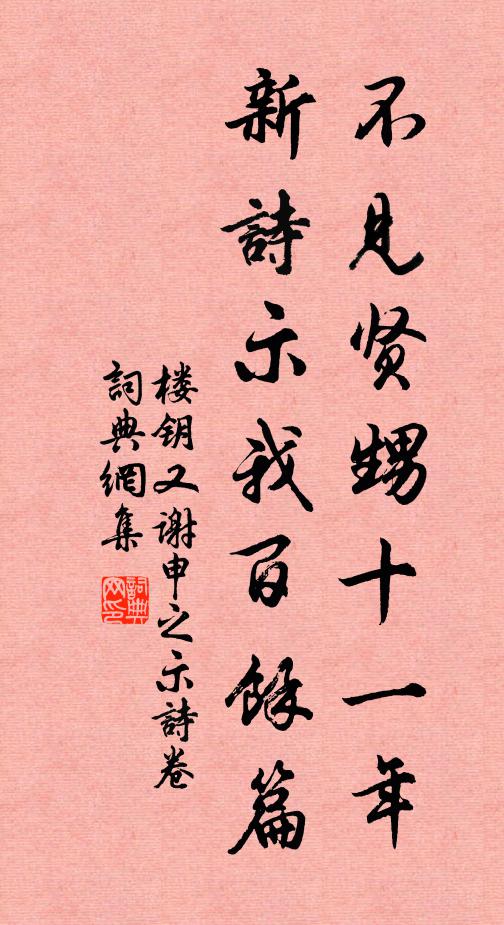 不见贤甥十一年
新詩示我百餘篇
楼钥又谢申之示詩卷
詞典網集
詞典網印